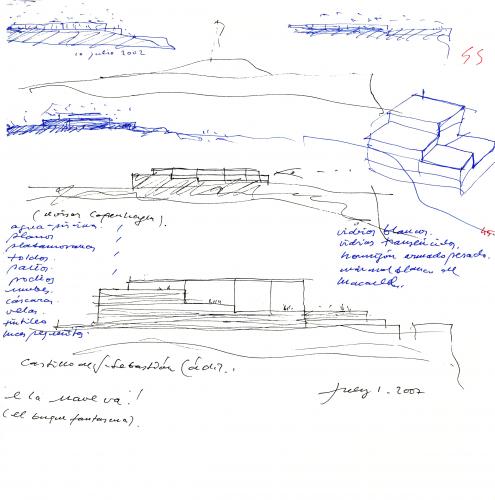 10 julio 2002
(Utzon Copenhagen).
agua-piscina
planos
plataformas
toldos
patios
podios
nubes.
cáscaras
velas.
vidrios blancos.
vidrios translúcidos.
hormigón armado pesado.
mármol blanco de
Macael.
Castillo de S. Sebastián Cádiz.
July 1. 2002
e la nave va!
(el buque fantasma).